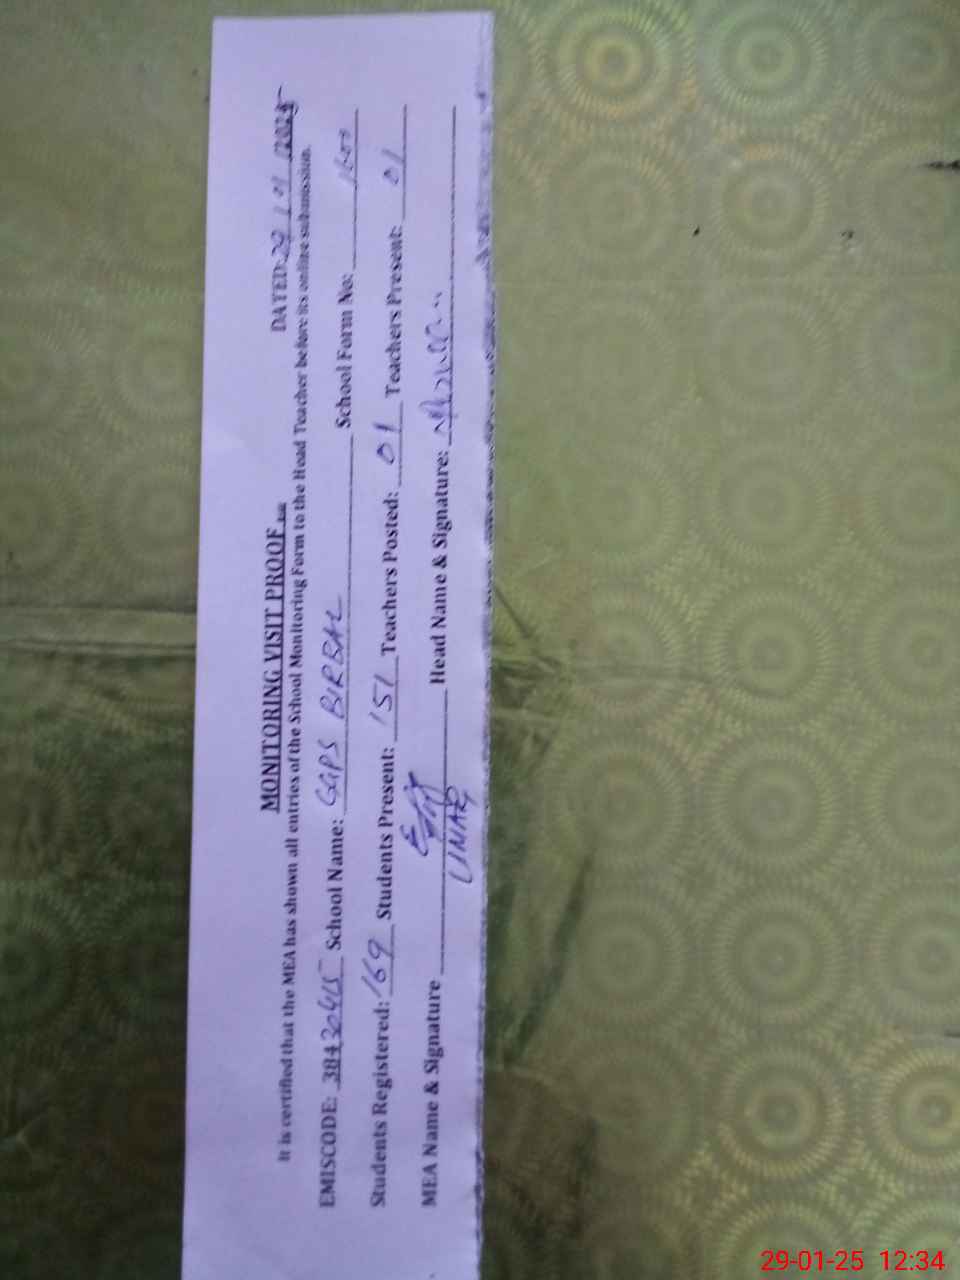 MONITORING VISIT PROOF
DATED: 29 / 01 / 2025
It is certified that the MEA has shown all entries of the School Monitoring Form to the Head Teacher before its online submission.
EMISCODE: 38430415 School Name: GGPS BIRBAL School Form No:
Students Registered: 169 Students Present: 151 Teachers Posted: 01 Teachers Present: 01
MEA Name & Signature Head Name & Signature:
29-01-25 12:34